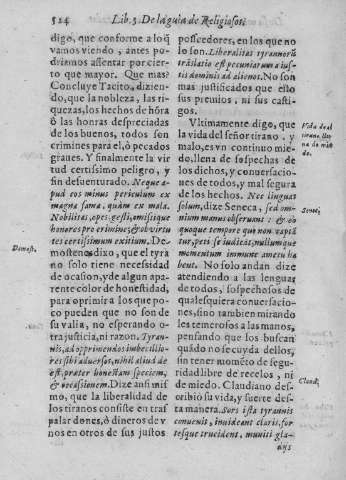 524 Lib. 5. De la gula de Religiosos.
digo, que conforme a lo q̃
vamos viendo, antes po-
driamos assentar por cier-
to que mayor. Que mas?
Concluye Tacito, dizien-
do, que la nobleza, las ri-
quezas, los hechos de hõra
ô las honras despreciadas
de los buenos, todos son
crimines para el, ô pecados
granes. Y finalmente la vir
tud certissimo peligro, y
fin desuenturado. Neque a-
pud eos minus periculum ex
magna fama, quàm ex mala.
Nobilitas, opes, gesti, omisique
honores pro crimine, & ob virtu
tes certissimum exitium. De-
mostenes dixo, que el tyra
no solo tiene necessidad
de ocasion, y de algun apa-
rente color de honestidad,
para oprimir a los que po-
co pueden que no son de
su valia, no esperando o-
tra justicia, ni razon. Tyran-
nis, ad opprimendos imbecillio-
res sibi aduersos, nihil aliud de-
est, præter honestam speciem,
& occasionem. Dize ansi mis
mo, que la liberalidad de
los tiranos consiste en tras
palar dones, ò dineros de v
nos en otros de sus justos
Demost.
posseedores, en los que no
lo son. Liberalitas tyrannorũ
trãslatio est pecuniarum a ius-
tis dominis ad alienos. No son
mas justificados que esto
sus premios, ni sus casti-
gos.
Vltimamente digo, que
la vida del señor tirano, y
malo, es vn continuo mie-
do, llena de sospechas de
los dichos, y conuersacio-
nes de todos, y mal segura
de los hechos. Nec linguas
solum, dize Seneca, sed om-
nium manus obseruant: & eo
quoque tempore quo non capta
tur, peti se iudicat, nullumque
momentum immune ametu ha
bent. No solo andan dize
atendiendo a las lenguas
de todos, sospechosos de
qualesquiera conuersacio-
nes, sino tambien mirando
les temerosos a las manos,
pensando que los buscan
quãdo no se cuyda dellos,
sin tener momẽto de segu-
ridad libre de recelos, ni
de miedo. Claudiano des-
cribio su vida, y suerte des-
ta manera. Sors ista tyrannis
conuenit, inuideant claris, for
tesque trucident, muniti gla-
dijs
Vida del
tirano, lle
na de mie
do.
Senec.
Claud.